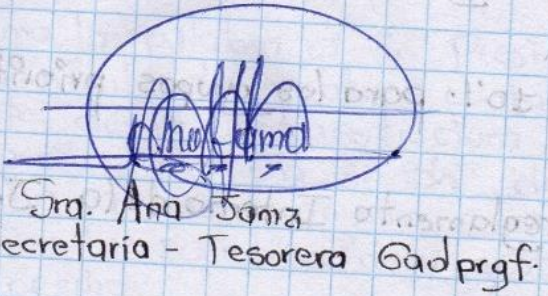 Ana Jama
Sra. Ana Jama
ecretaria - Tesorera Gadprgf.